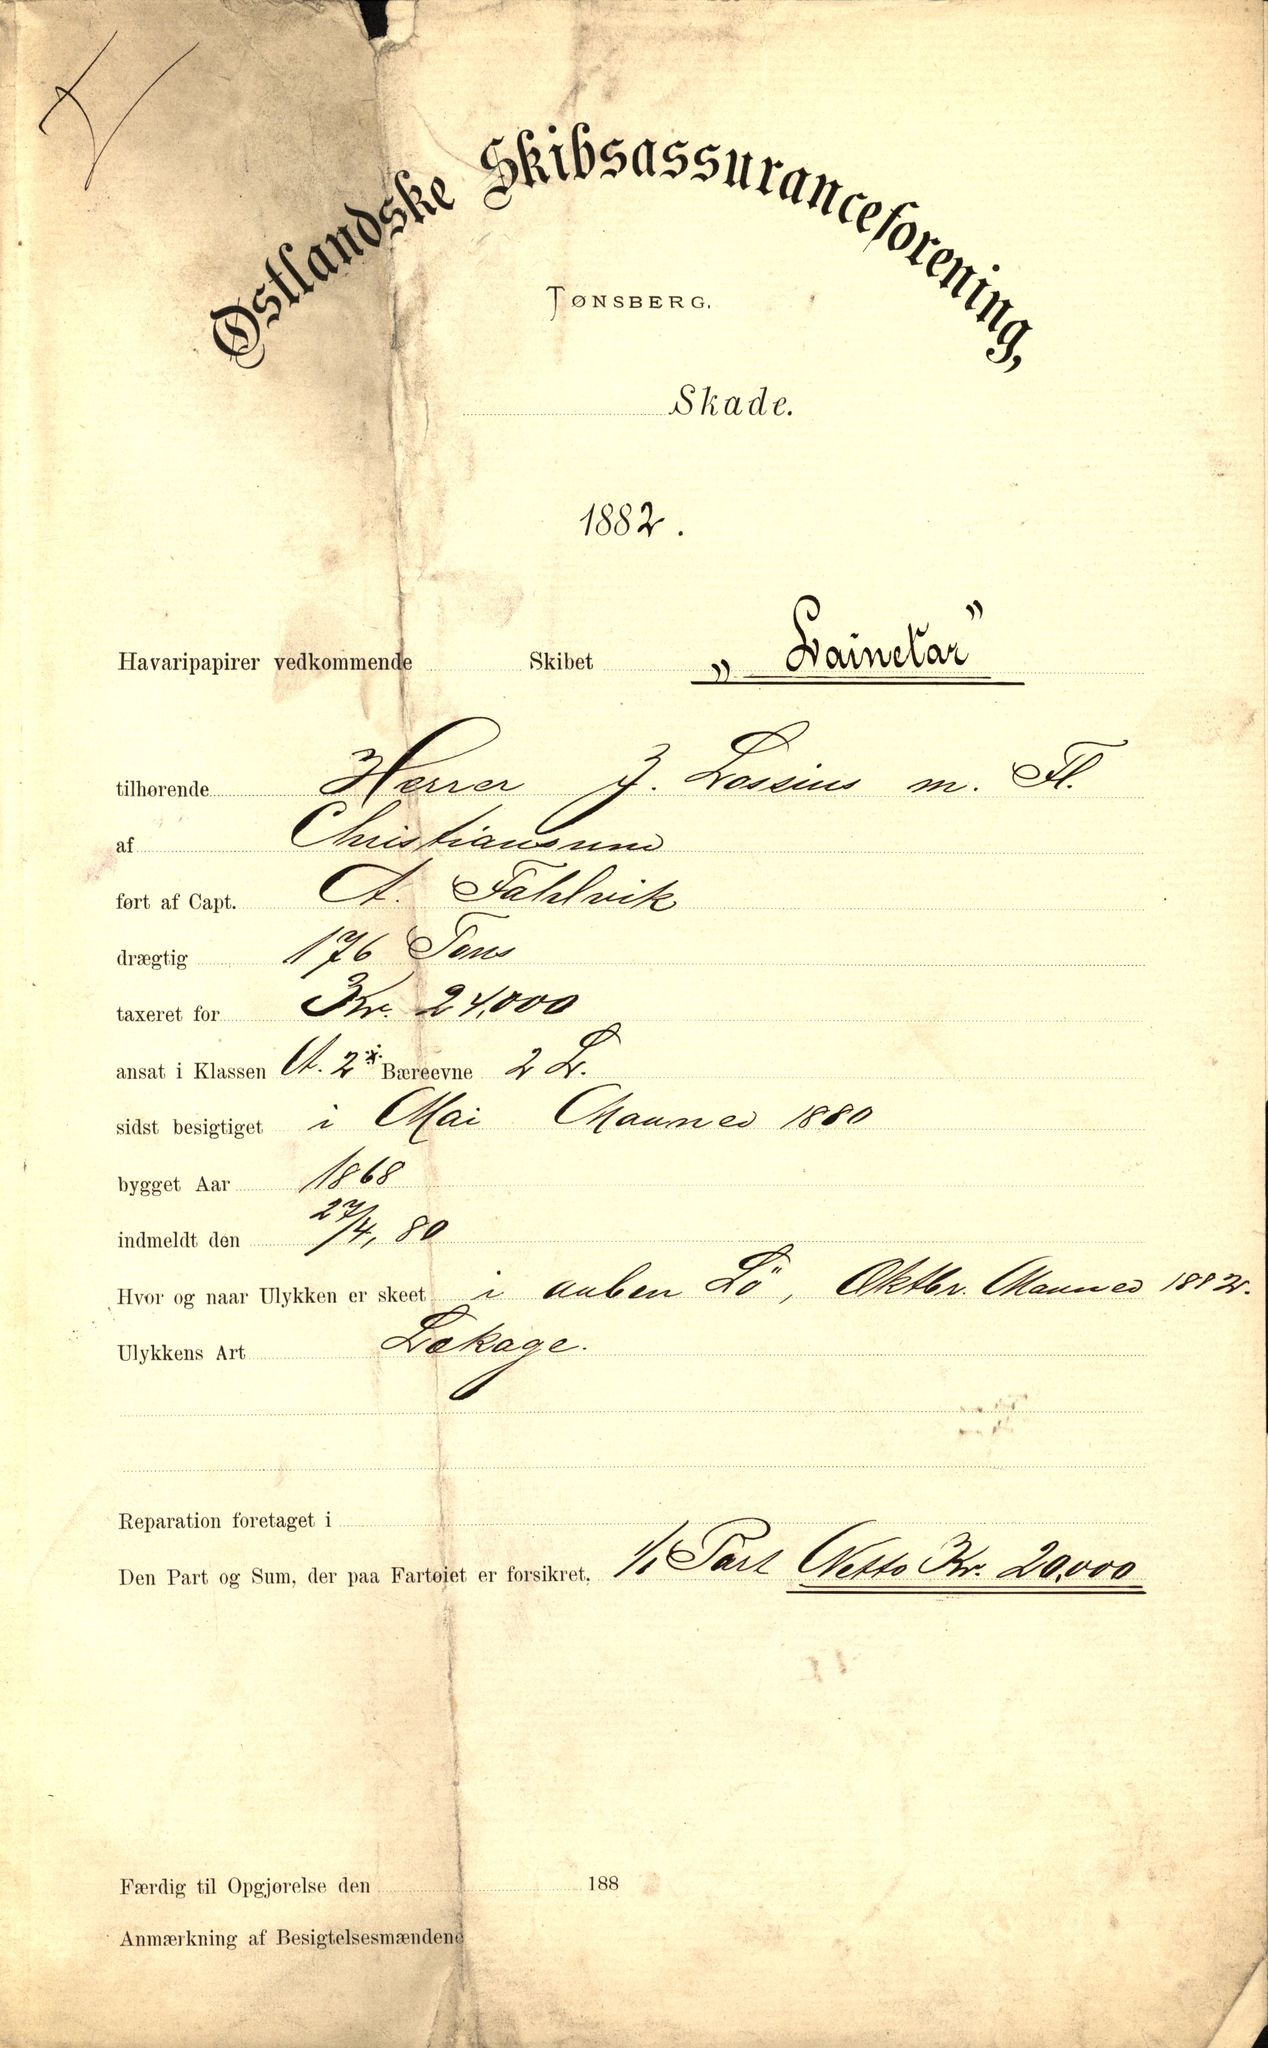 Østlandske Skibsassuranceforening,
TØNSBERG.
Skade.
1882.
Havaripapirer vedkommende Skibet „Lainetar”
tilhørende Herrer J. Lossius m. Fl.
af Christiansund
ført af Capt. A. Fahlvik
drægtig 176 Tons
taxeret for Kr. 24,000
ansat i Klassen A. 2* Bæreevne 2 L.
sidst besigtiget i Mai Maaned 1880
bygget Aar 1868
indmeldt den 27/4, 80
Hvor og naar Ulykken er skeet i aaben Sö, Oktbr. Maaned 1882.
Ulykkens Art Lækage.
Reparation foretaget i
Den Part og Sum, der paa Fartøiet er forsikret, 1/1 Part Netto Kr. 20.000
Færdig til Opgjørelse den 188
Anmærkning af Besigtelsesmændene